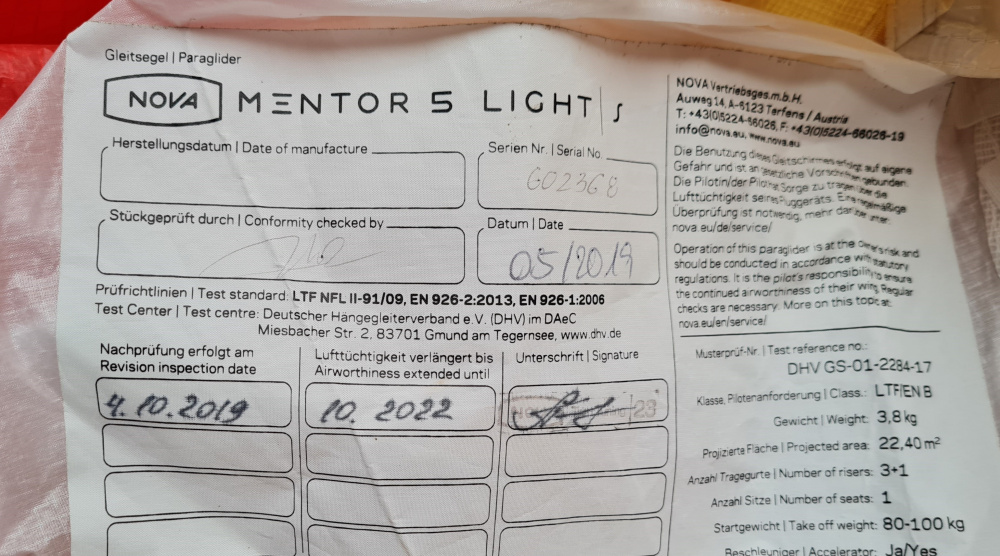 Gleitsegel | Paraglider
NOVA MENTOR 5 LIGHT | S
Herstellungsdatum | Date of manufacture
Serien Nr. | Serial No
G02368
Stückgeprüft durch | Conformity checked by
Datum | Date
05/2019
Prüfrichtlinien | Test standard: LTF NFL II-91/09, EN 926-2:2013, EN 926-1:2006
Test Center | Test centre: Deutscher Hängegleiterverband e.V. (DHV) im DAeC
Miesbacher Str. 2, 83701 Gmund am Tegernsee, www.dhv.de
Nachprüfung erfolgt am
Revision inspection date
Lufttüchtigkeit verlängert bis
Airworthiness extended until
Unterschrift | Signature
4.10.2019
10. 2022
23
NOVA Vertriebsges.m.b.H.
Auweg 14, A-6123 Terfens / Austria
T: +43(0)5224-66026, F: +43(0)5224-66026-19
info@nova.eu, www.nova.eu
Die Benutzung dieses Gleitschirmes erfolgt auf eigene
Gefahr und ist an gesetzliche Vorschriften gebunden.
Die Pilotin/der Pilot Sorge zu tragen über die
Lufttüchtigkeit seines Fluggeräts. Eine regelmäßige
Überprüfung ist notwendig, mehr darüber unter:
nova.eu/de/service/
Operation of this paraglider is at the owner's risk and
should be conducted in accordance with statutory
regulations. It is the pilot's responsibility to ensure
the continued airworthiness of their wing. Regular
checks are necessary. More on this topic at:
nova.eu/en/service/
Musterprüf-Nr. | Test reference no.:
DHV GS-01-2284-17
Klasse, Pilotenanforderung | Class.: LTF/EN B
Gewicht | Weight: 3,8 kg
Projizierte Fläche | Projected area: 22,40 m²
Anzahl Tragegurte | Number of risers: 3+1
Anzahl Sitze | Number of seats: 1
Startgewicht | Take off weight: 80-100 kg
Beschleuniger | Accelerator: Ja/Yes